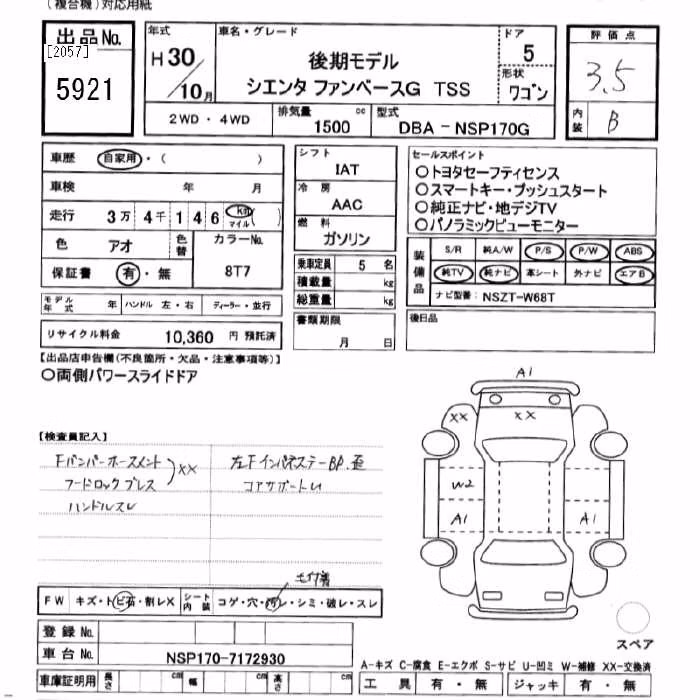 （複合機）対応用紙
出品No.
[2057]
5921
年式
H 30 / 10 月
車名・グレード
後期モデル
シエンタ ファンベースG TSS
ドア
5
形状
ワゴン
評価点
3.5
内装
B
2WD ・ 4WD
排気量 1500 cc
型式 DBA - NSP170G
車歴 自家用 ・（ ）
車検 年 月
走行 3万 4千 1 4 6 Km マイル（ ）
色 アオ 色替
カラーNo. 8T7
保証書 有 ・ 無
モデル年式 年 ハンドル 左 ・ 右 ディーラー ・ 並行
リサイクル料金 10,360 円 預託済
シフト
IAT
冷房
AAC
燃料
ガソリン
乗車定員 5 名
積載量 kg
総重量 kg
書類期限
月 日
セールスポイント
○トヨタセーフティセンス
○スマートキー・プッシュスタート
○純正ナビ・地デジTV
○パノラミックビューモニター
装備品
S/R 純A/W P/S P/W ABS
純TV 純ナビ 革シート 外ナビ エアB
ナビ型番： NSZT-W68T
後日品
【出品店申告欄（不良箇所・欠品・注意事項等）】
○両側パワースライドドア
【検査員記入】
Fバンパーホースメント
フードロックブレス
XX
ハンドルスレ
左FインパネステーBP.歪
コアサポートU
A1
XX XX
W2
A1 A1
スペア
FW キズ・トビ石・割レX
シート内装 コゲ・穴・汚レ・シミ・破レ・スレ
登録No.
車台No. NSP170-7172930
車庫証明用 長さ cm 幅 cm 高さ cm
A-キズ C-腐食 E-エクボ S-サビ U-凹ミ W-補修 XX-交換済
工具 有 ・ 無 ジャッキ 有 ・ 無